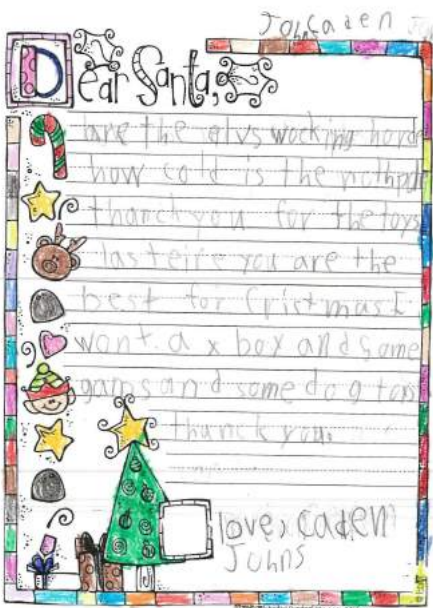 Caden
Dear Santa,
are the elvs wocking hord
how cold is the nothpol
thanck you for the toys
las teire you are the
best for Cristmas I
wont a x box and some
gams and some dog toys
thanck you.
love, caden
Johns